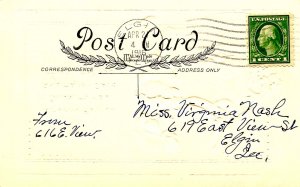 ELGIN
APR 2
4
Post Card
U.S. POSTAGE
1 CENT 1
CORRESPONDENCE
ADDRESS ONLY
Miss. Virginia Nash
From
619 East View St
616 E. View.
Elgin
Ill.